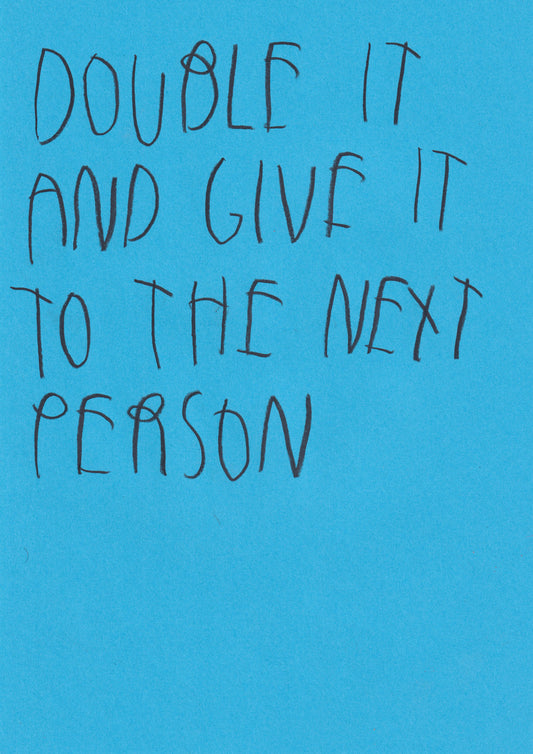 DOUBLE IT
AND GIVE IT
TO THE NEXT
PERSON